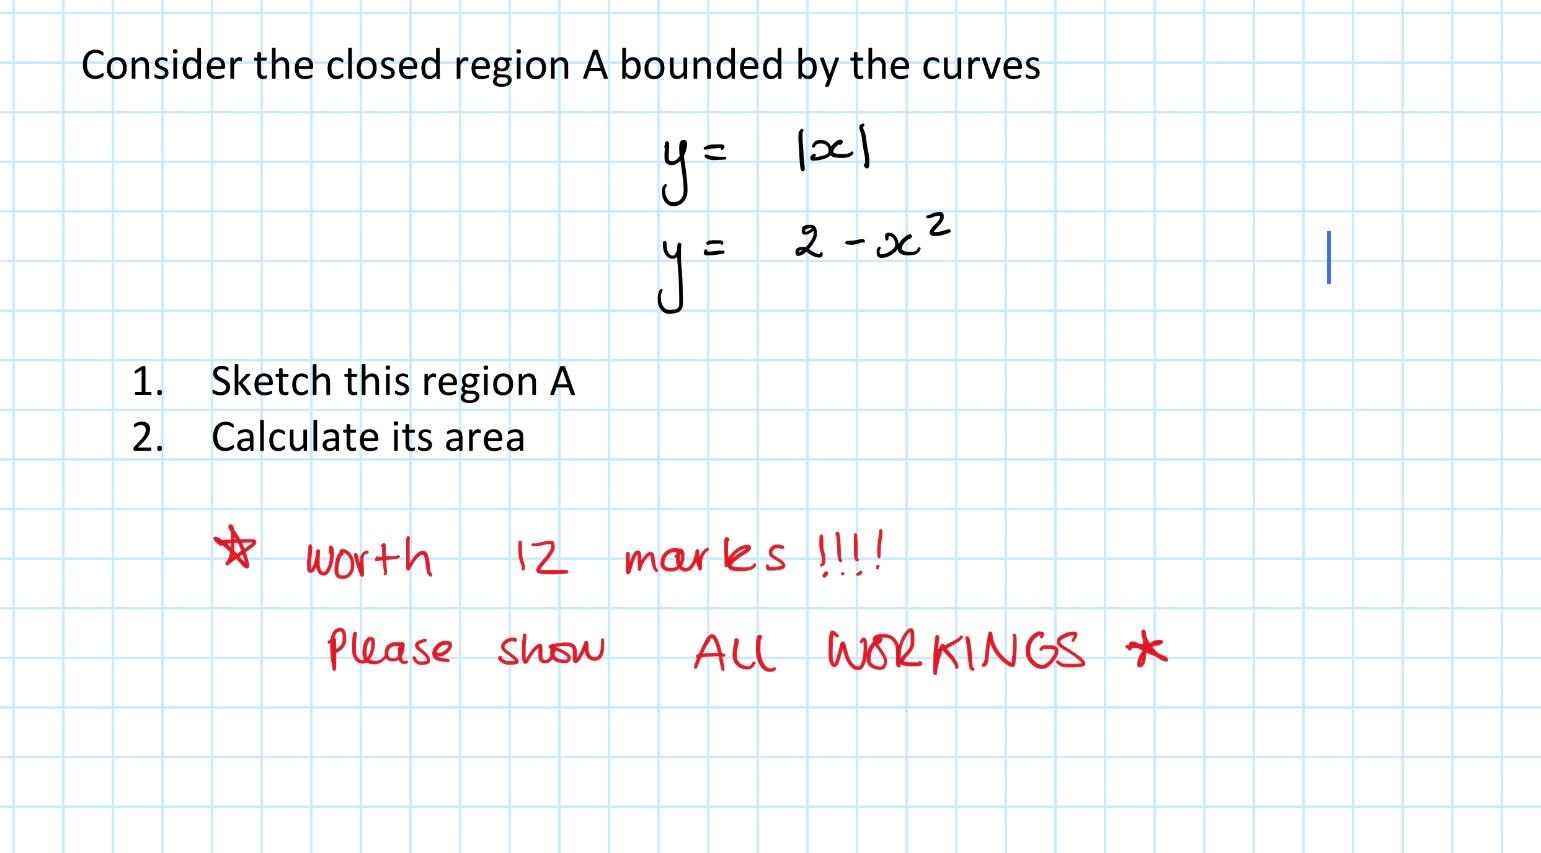 Consider the closed region A bounded by the curves
y = |x|
y = 2 - x²
1. Sketch this region A
2. Calculate its area
☆ worth 12 marks !!!!
Please show ALL WORKINGS *